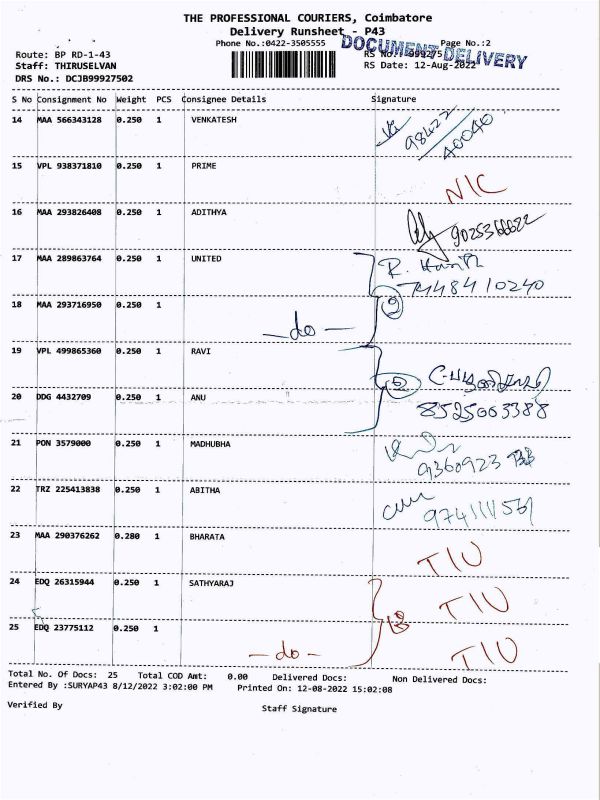 THE PROFESSIONAL COURIERS, Coimbatore
Delivery Runsheet - P43
Phone No.:0422-3505555
DOCUMENT DELIVERY
Page No.:2
Route: BP RD-1-43
RS No.: 999275
Staff: THIRUSELVAN
RS Date: 12-Aug-2022
DRS No.: DCJB99927502
S No Consignment No Weight PCS Consignee Details Signature
14 MAA 566343128 0.250 1 VENKATESH
98422
40040
15 VPL 938371810 0.250 1 PRIME
NIC
16 MAA 293826408 0.250 1 ADITHYA
17 MAA 289863764 0.250 1 UNITED
7448410240
18 MAA 293716950 0.250 1
2
— do —
19 VPL 499865360 0.250 1 RAVI
20 DDG 4432709 0.250 1 ANU
8525003388
21 PON 3579000 0.250 1 MADHUBHA
22 TRZ 225413838 0.250 1 ABITHA
23 MAA 290376262 0.280 1 BHARATA
TIU
24 EDQ 26315944 0.250 1 SATHYARAJ
TIU
25 EDQ 23775112 0.250 1
— do —
TIU
Total No. Of Docs: 25 Total COD Amt: 0.00 Delivered Docs: Non Delivered Docs:
Entered By :SURYAP43 8/12/2022 3:02:00 PM Printed On: 12-08-2022 15:02:08
Verified By
Staff Signature